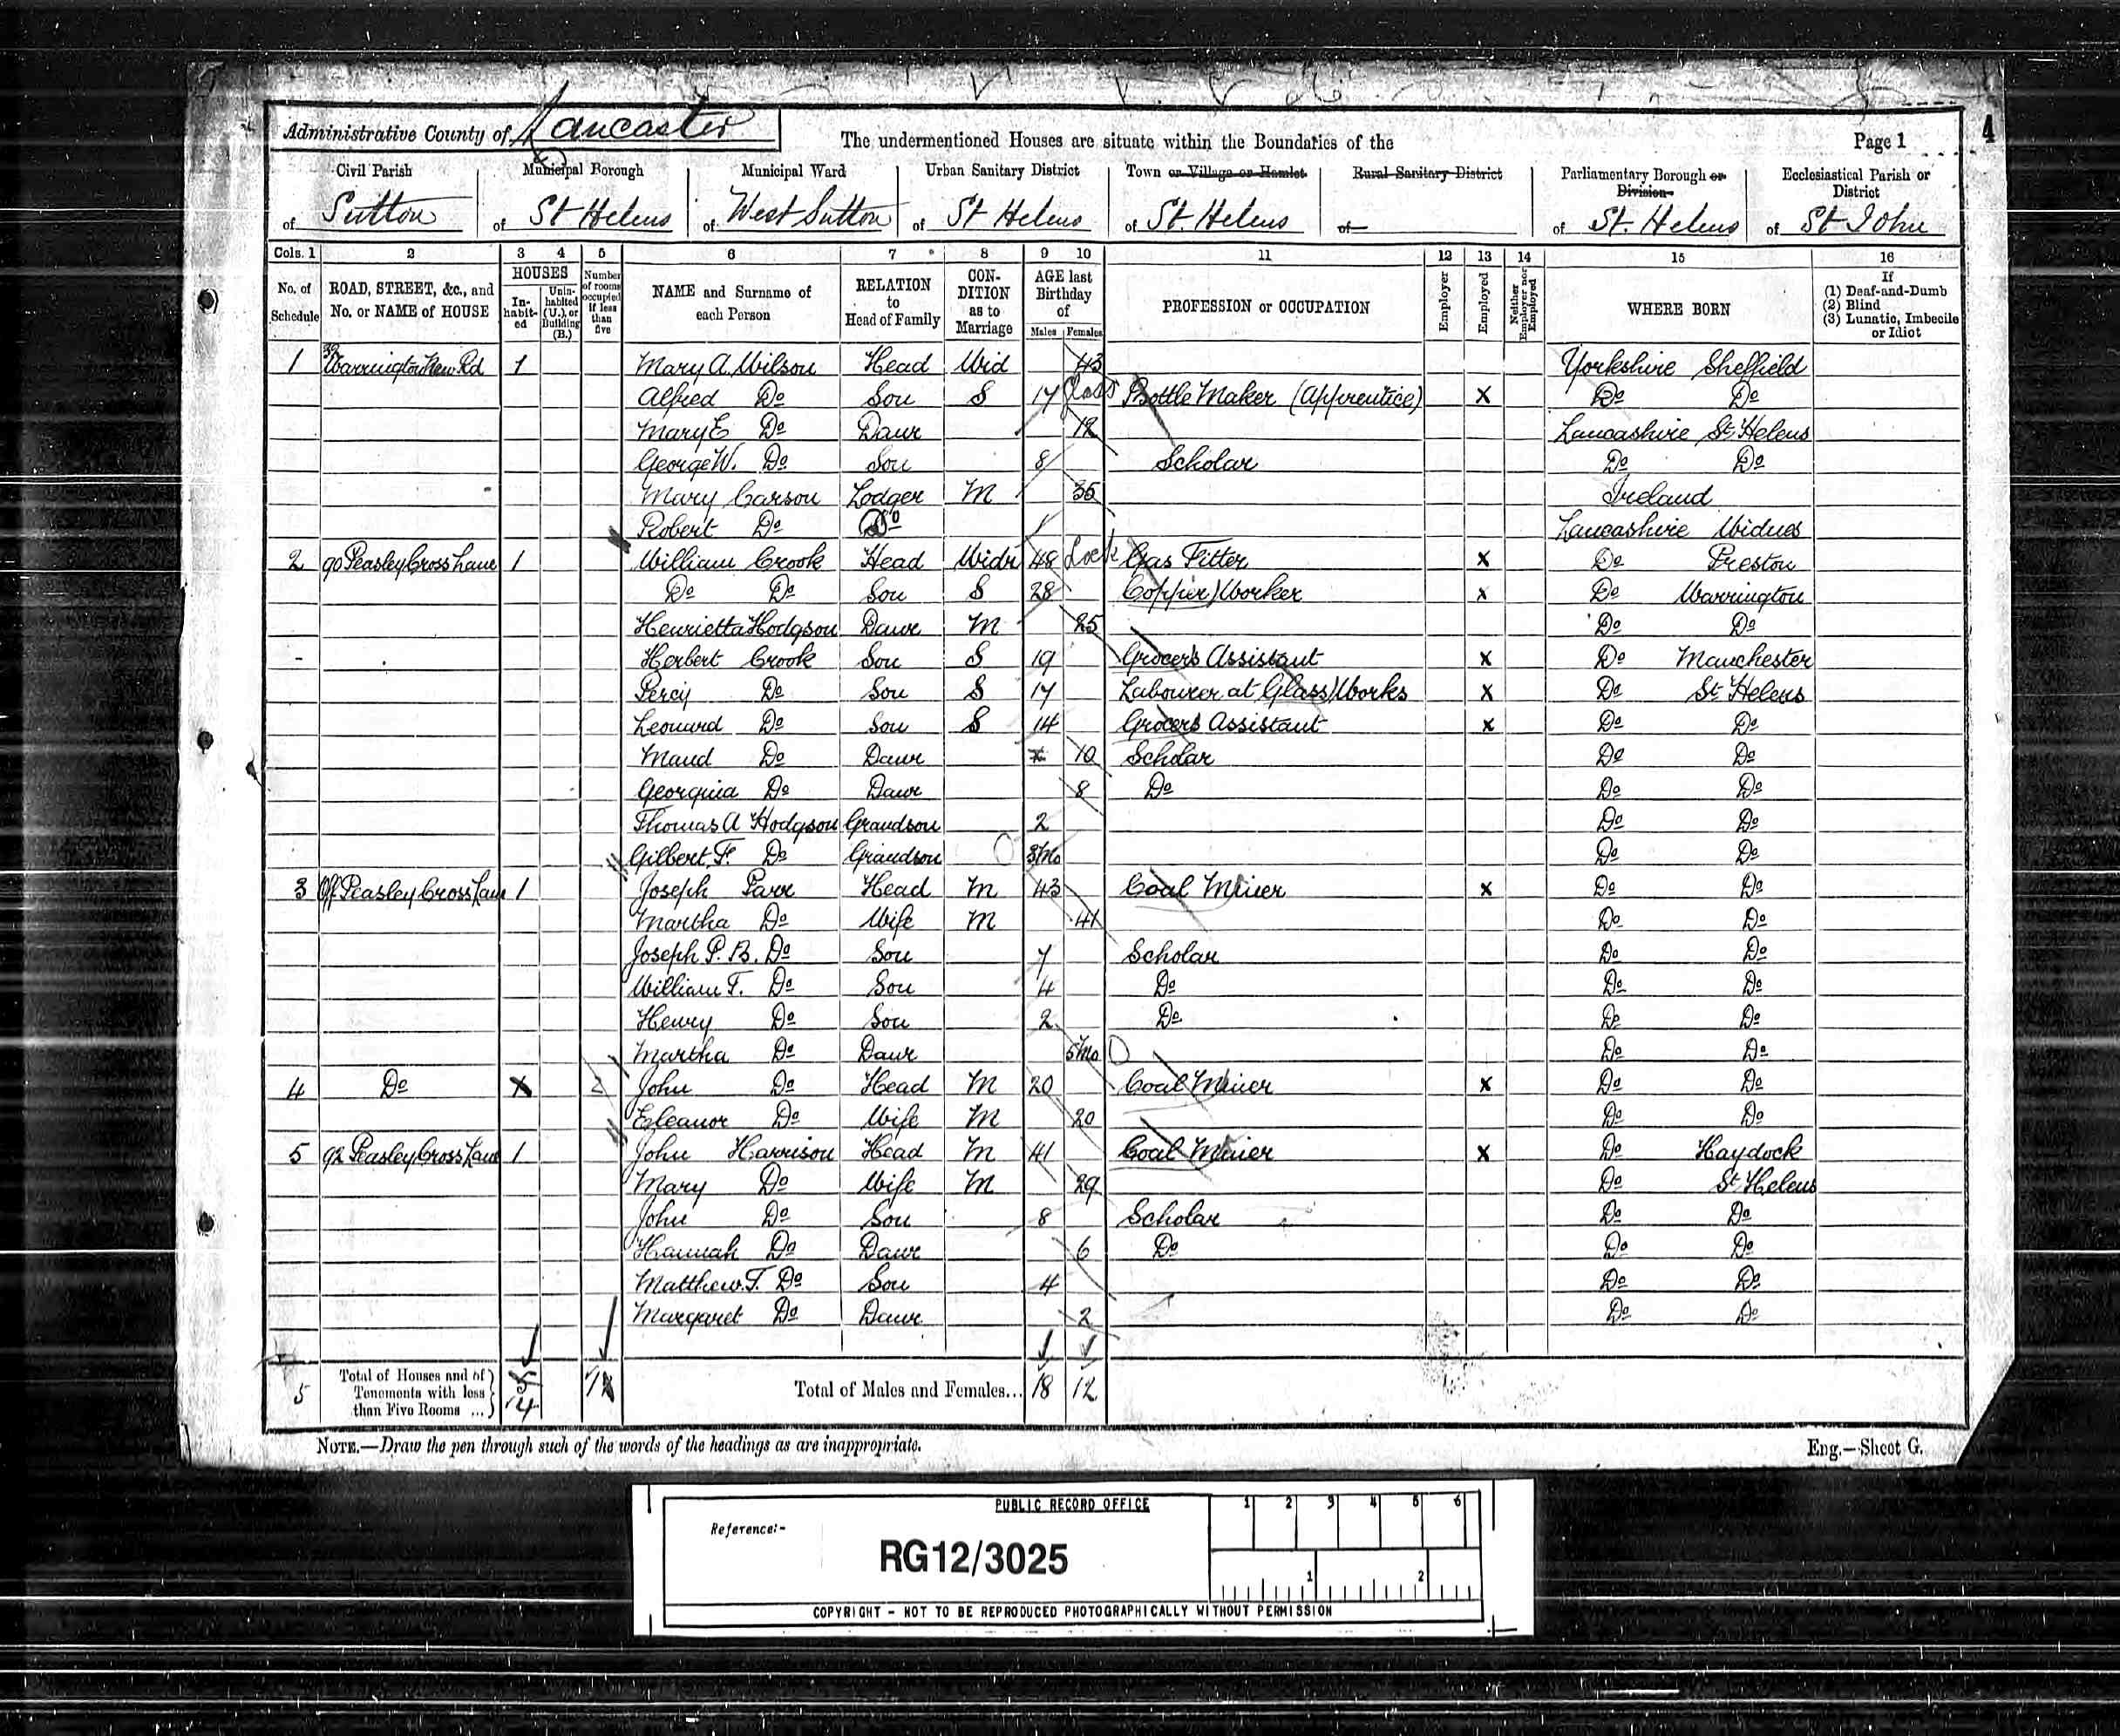 Administrative County of Lancaster
The undermentioned Houses are situate within the Boundaries of the
Page 1
4
Civil Parish of Sutton
Municipal Borough of St Helens
Municipal Ward of West Sutton
Urban Sanitary District of St Helens
Town or Village or Hamlet of St. Helens
Rural Sanitary District of
Parliamentary Borough or Division of St. Helens
Ecclesiastical Parish or District of St John
Cols. 1 2 3 4 5 6 7 8 9 10 11 12 13 14 15 16
No. of Schedule
ROAD, STREET, &c., and No. or NAME of HOUSE
HOUSES
In-habit-ed
Unin-habited (U.), or Building (B.)
Number of rooms occupied if less than five
NAME and Surname of each Person
RELATION to Head of Family
CON-DITION as to Marriage
AGE last Birthday of
Males Females
PROFESSION or OCCUPATION
Employer
Employed
Neither Employer nor Employed
WHERE BORN
If (1) Deaf-and-Dumb (2) Blind (3) Lunatic, Imbecile or Idiot
1 39 Warrington New Rd 1 Mary A. Wilson Head Wid 43 Yorkshire Sheffield
Alfred Do Son S 17 Glass Bottle Maker (Apprentice) X Do Do
Mary E Do Daur 12 Lancashire St Helens
George W. Do Son 8 Scholar Do Do
Mary Carson Lodger M 35 Ireland
Robert Do Do 1 Lancashire Widnes
2 90 Peasley Cross Lane 1 William Crook Head Widr 48 Gas Fitter X Do Preston
Do Do Son S 28 Copper Worker X Do Warrington
Henrietta Hodgson Daur M 25 Do Do
Herbert Crook Son S 19 Grocers Assistant X Do Manchester
Percy Do Son S 17 Labourer at Glass Works X Do St Helens
Leonard Do Son S 14 Grocers Assistant X Do Do
Maud Do Daur 10 Scholar Do Do
Georgina Do Daur 8 Do Do Do
Thomas A Hodgson Grandson 2 Do Do
Gilbert F. Do Grandson 3Mo Do Do
3 Off Peasley Cross Lane 1 Joseph Parr Head M 43 Coal Miner X Do Do
Martha Do Wife M 41 Do Do
Joseph P. B. Do Son 7 Scholar Do Do
William F. Do Son 4 Do Do Do
Henry Do Son 2 Do Do Do
Martha Do Daur 5Mo Do Do
4 Do X 2 John Do Head M 20 Coal Miner X Do Do
Eleanor Do Wife M 20 Do Do
5 92 Peasley Cross Lane 1 John Harrison Head M 41 Coal Miner X Do Haydock
Mary Do Wife M 29 Do St Helens
John Do Son 8 Scholar Do Do
Hannah Do Daur 6 Do Do Do
Matthew T. Do Son 4 Do Do
Margaret Do Daur 2 Do Do
5 Total of Houses and of Tenements with less than Five Rooms ... 4 1 Total of Males and Females... 18 12
NOTE.—Draw the pen through such of the words of the headings as are inappropriate.
Eng.—Sheet G.
PUBLIC RECORD OFFICE
1 2 3 4 5 6
Reference:-
RG12/3025
1 2
COPYRIGHT - NOT TO BE REPRODUCED PHOTOGRAPHICALLY WITHOUT PERMISSION